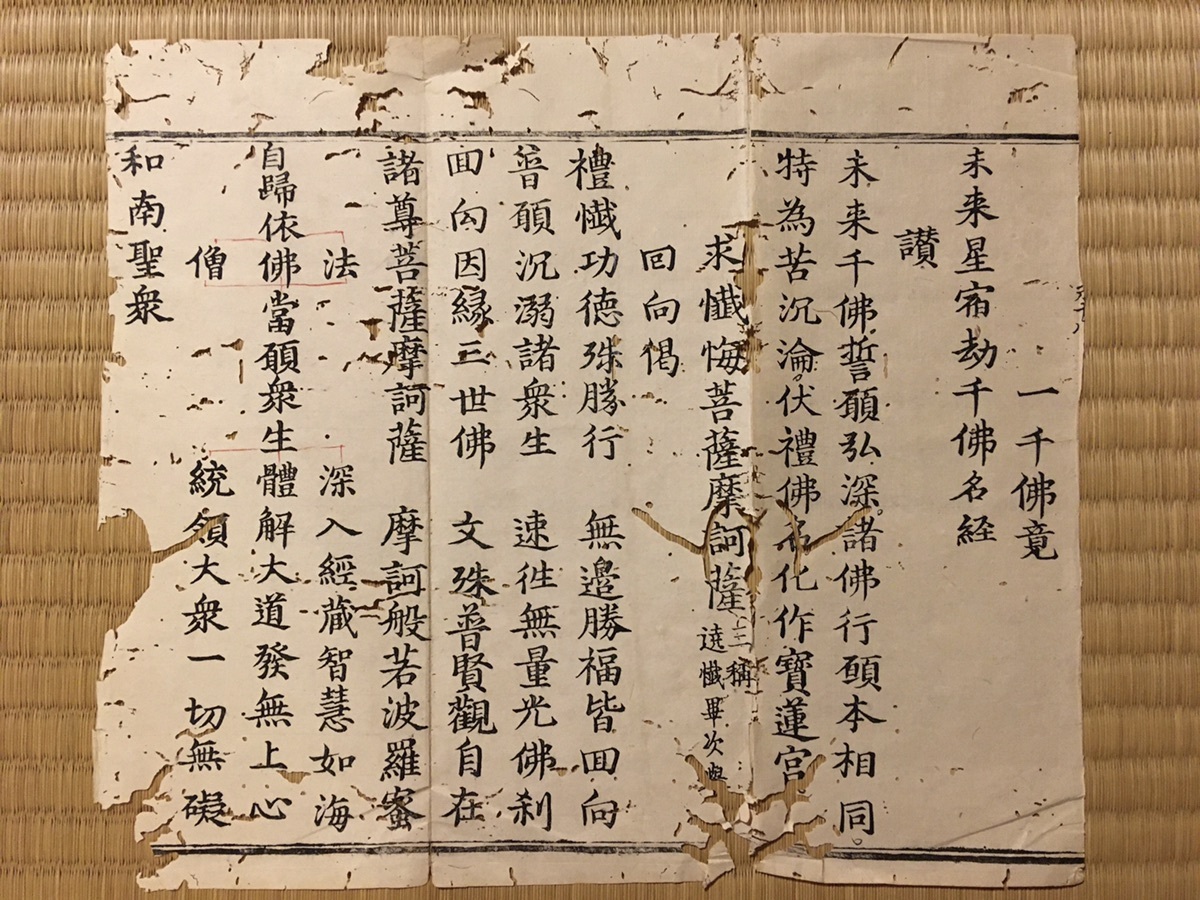 一千佛竟
未来星宿劫千佛名経
讃
未来千佛誓願弘深諸佛行願本相同
特為苦沉淪伏禮佛名化作寶蓮宮
求懺悔菩薩摩訶薩三稱
遶懺畢次
回向偈
禮懺功德殊勝行　無邊勝福皆回向
普願沉溺諸衆生　速徃無量光佛刹
回向因縁三世佛　文殊普賢觀自在
諸尊菩薩摩訶薩　摩訶般若波羅蜜
法　深入經蔵智慧如海
自歸依佛當願衆生體解大道發無上心
僧　統領大衆一切無礙
和南聖衆